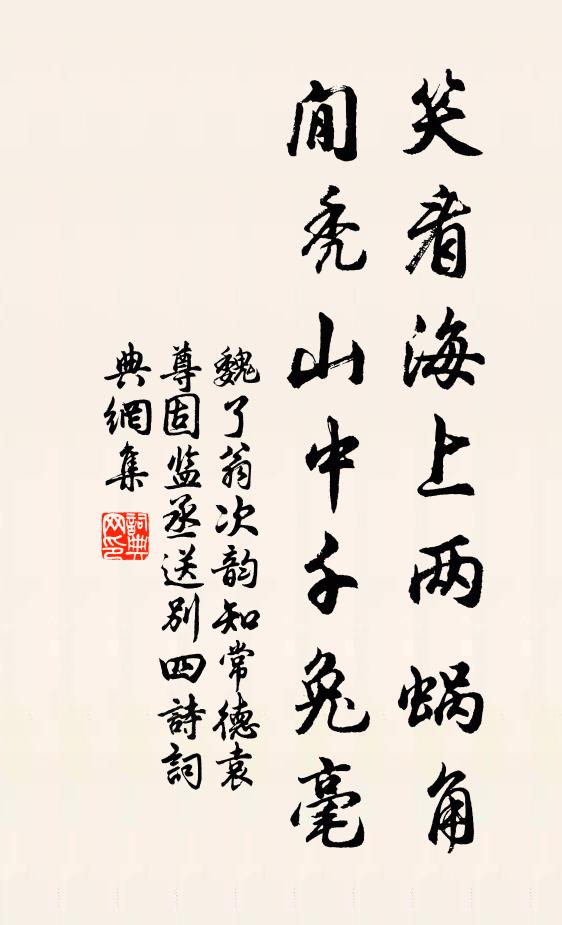 笑看海上两蜗角
闲秃山中千兔毫
魏了翁次韵知常德袁
尊固监丞送别四詩詞
典網集
詞典網印